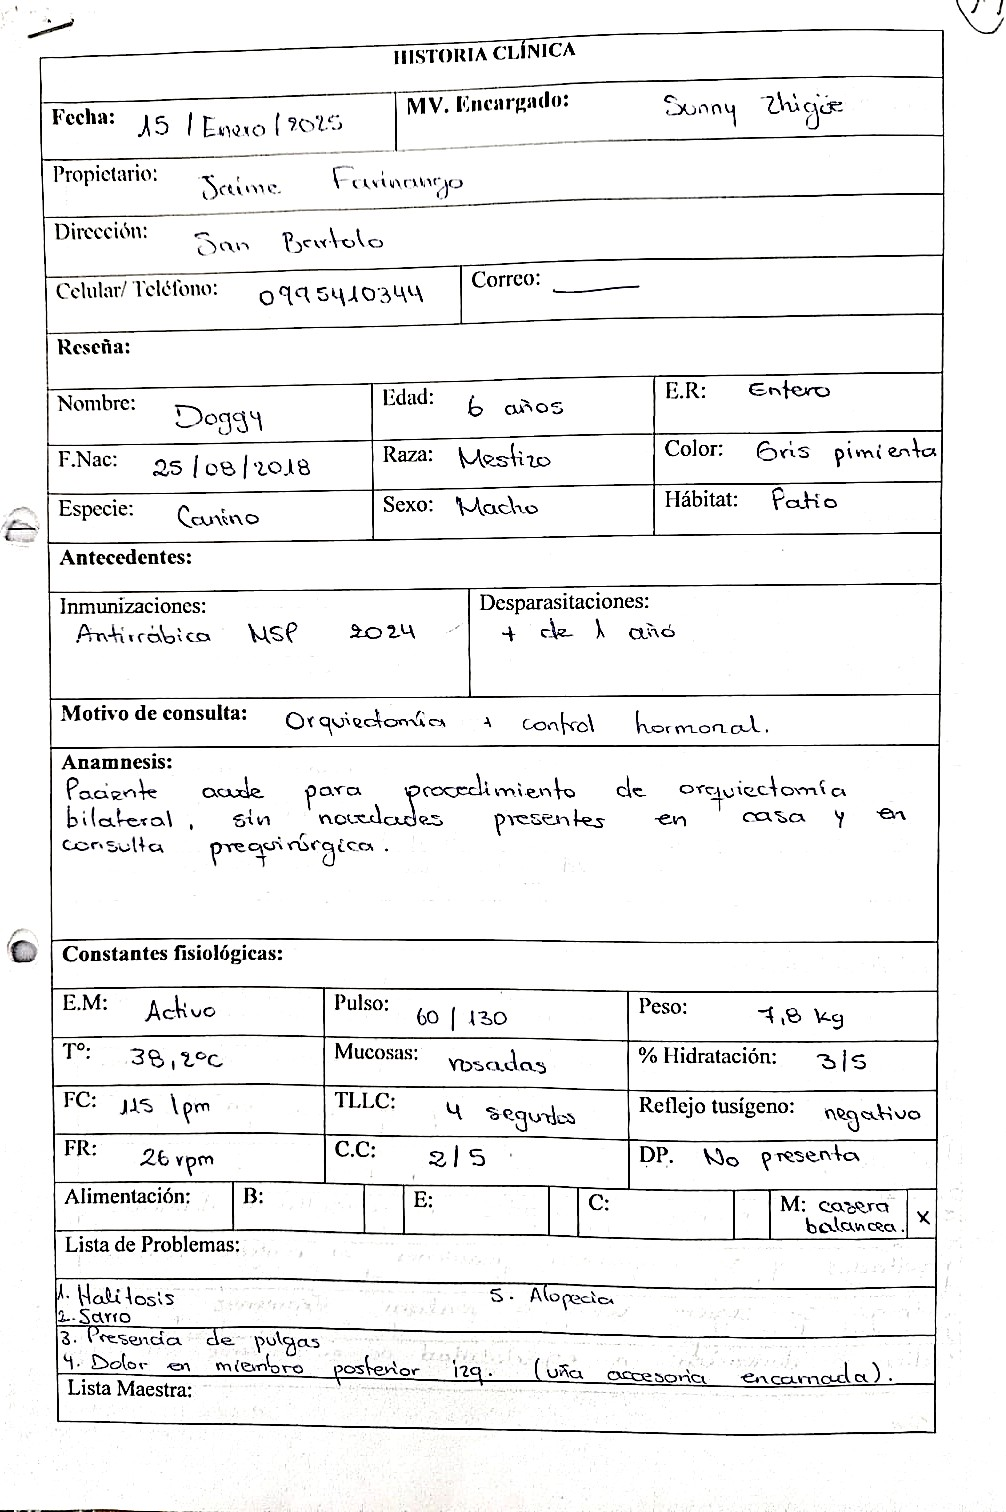 HISTORIA CLÍNICA
Fecha: 15 / Enero / 2025 MV. Encargado: Sunny Zhigüe
Propietario: Jaime Farinango
Dirección: San Bartolo
Celular/ Teléfono: 0995410344 Correo:
Reseña:
Nombre: Doggy Edad: 6 años E.R: Entero
F.Nac: 25/08/2018 Raza: Mestizo Color: Gris pimienta
Especie: Canino Sexo: Macho Hábitat: Patio
Antecedentes:
Inmunizaciones: Desparasitaciones:
Antirrábica MSP 2024 + de 1 año
Motivo de consulta: Orquiectomía + control hormonal.
Anamnesis:
Paciente acude para procedimiento de orquiectomía
bilateral, sin novedades presentes en casa y en
consulta prequirúrgica.
Constantes fisiológicas:
E.M: Activo Pulso: 60 / 130 Peso: 7,8 kg
Tº: 38,2ºC Mucosas: rosadas % Hidratación: 3/5
FC: 115 lpm TLLC: 4 segundos Reflejo tusígeno: negativo
FR: 26 rpm C.C: 2/5 DP. No presenta
Alimentación: B: E: C: M: casera balancea. X
Lista de Problemas:
1. Halitosis 5. Alopecia
2. Sarro
3. Presencia de pulgas
4. Dolor en miembro posterior izq. (uña accesoria encarnada).
Lista Maestra: